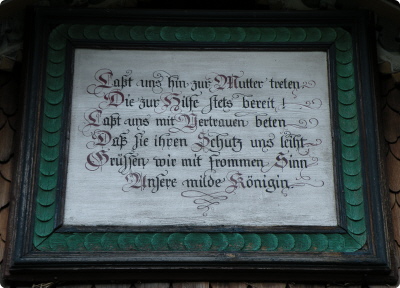 Laßt uns hin zur Mutter treten
Die zur Hilfe stets bereit !
Laßt uns mit Vertrauen beten
Daß sie ihren Schutz uns leiht
Grüssen wie mit frommen Sinn
Unsere milde Königin.